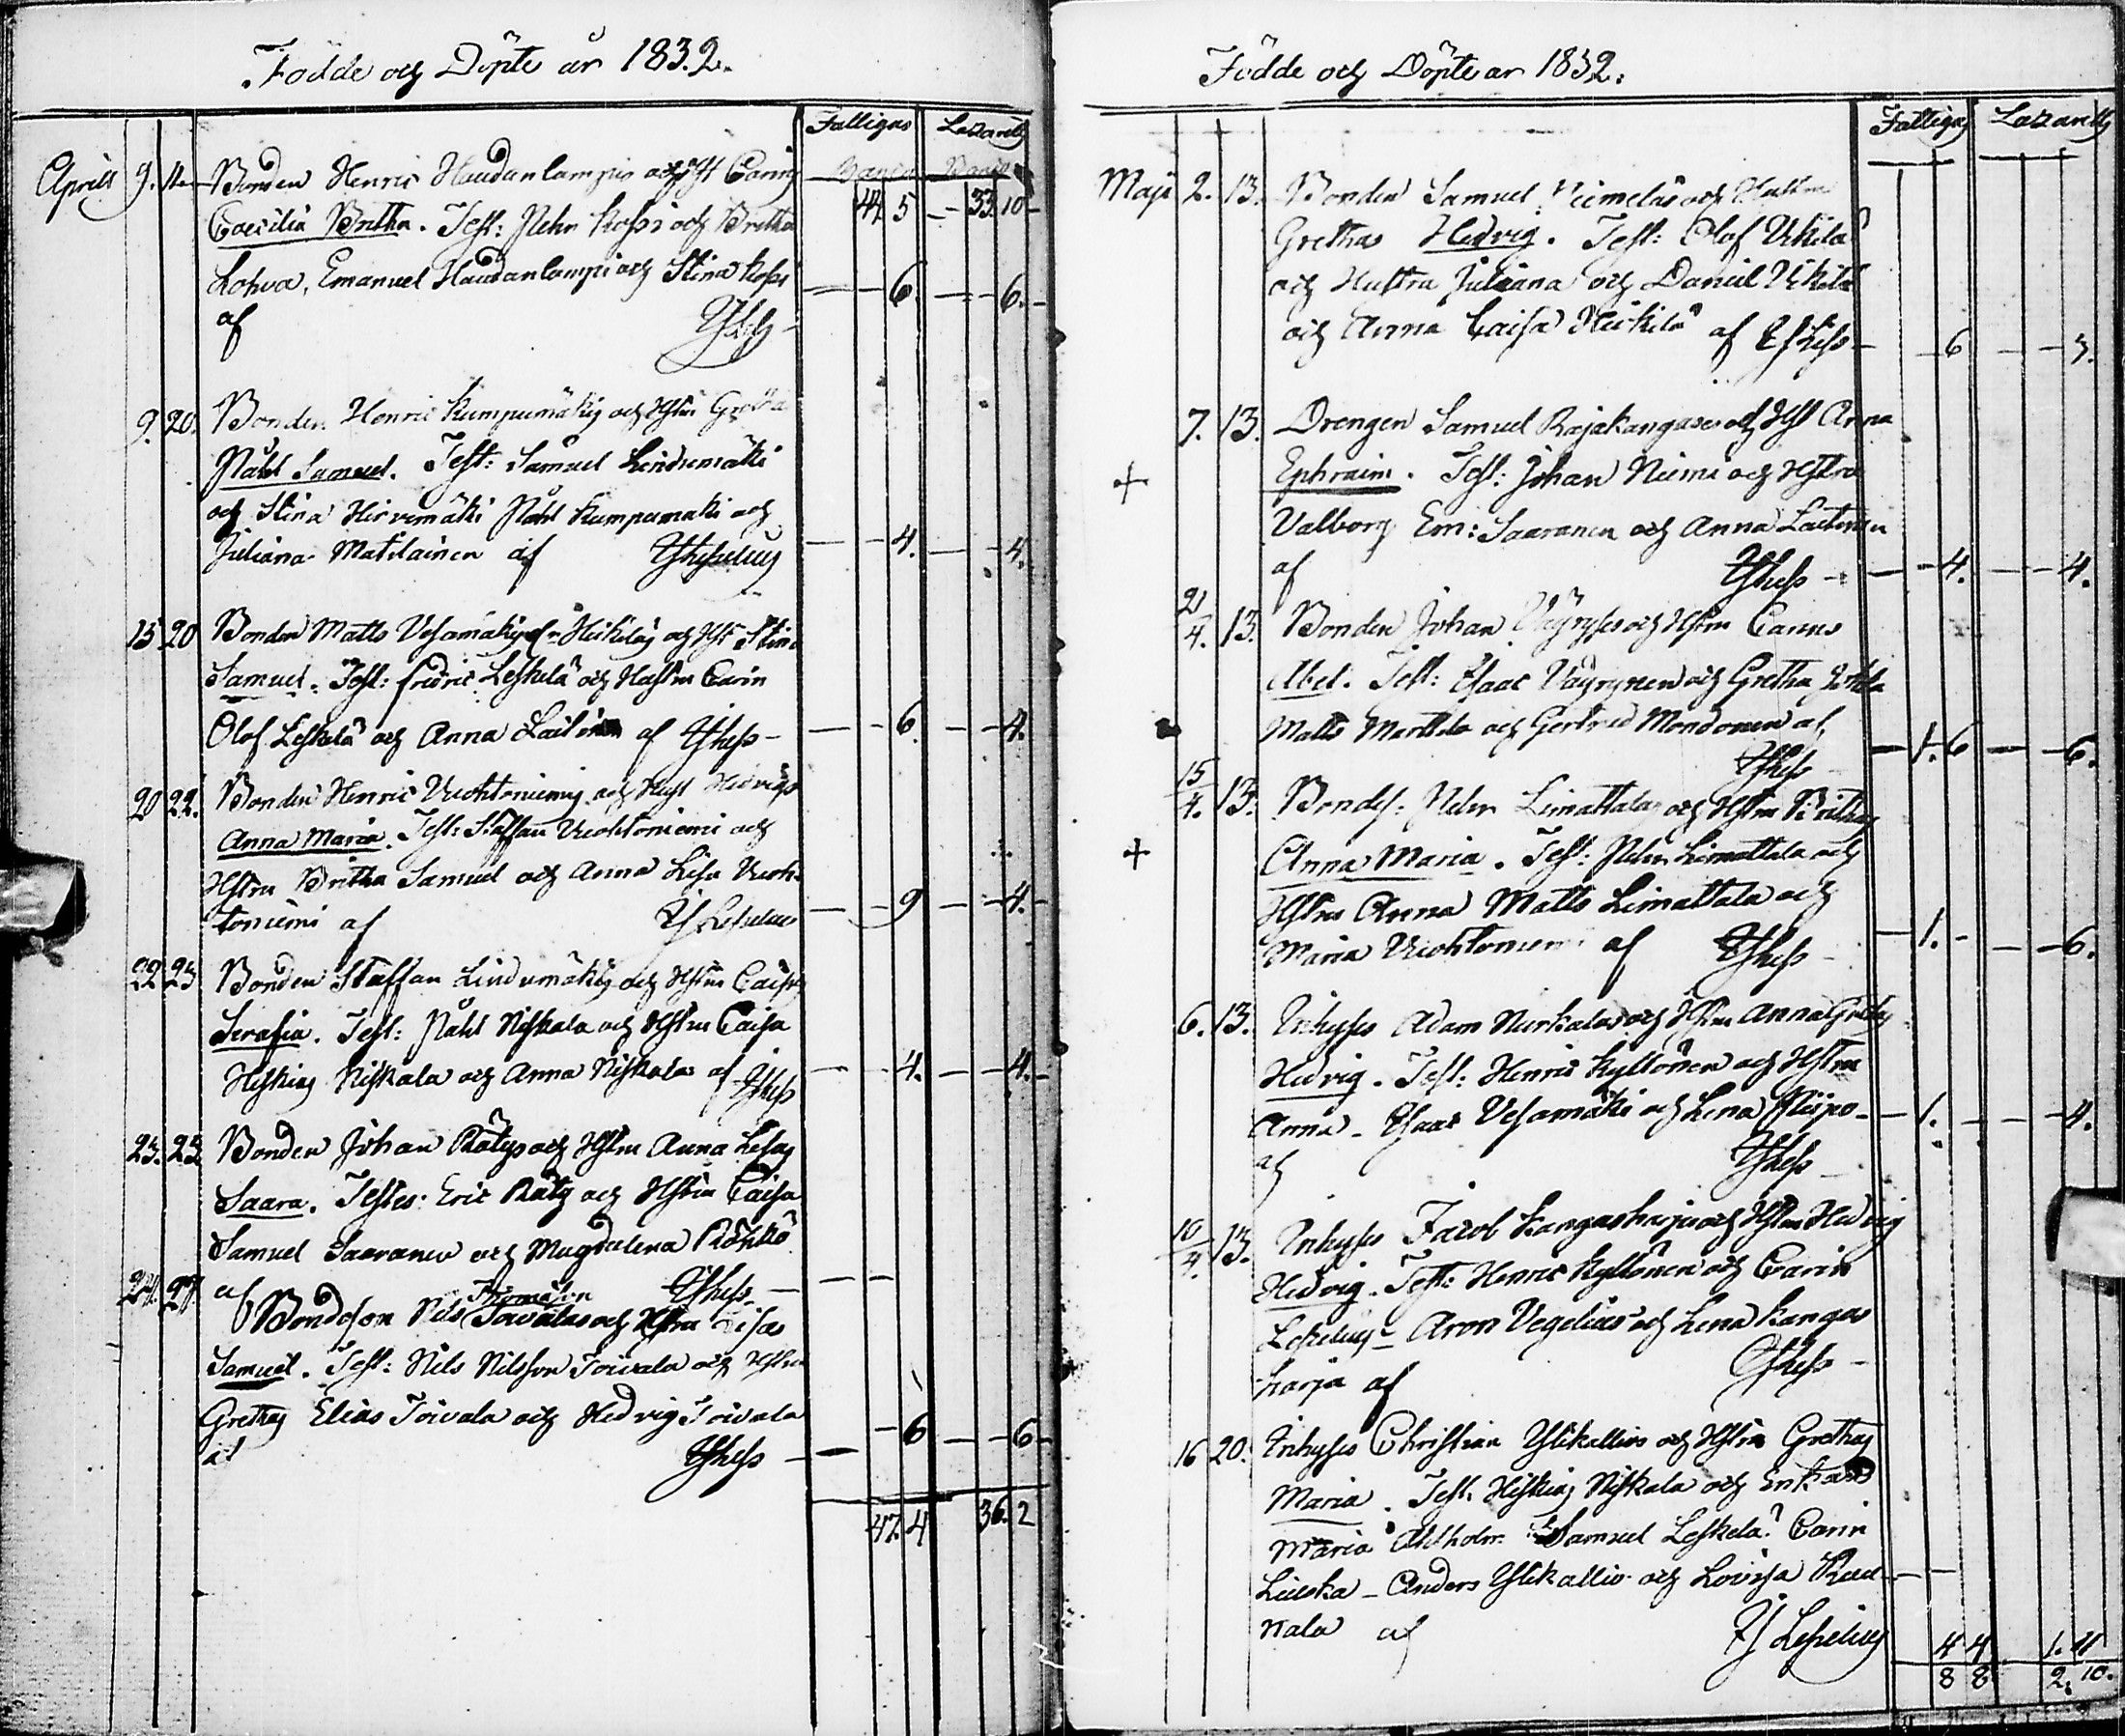 Födde och Döpte år 1832.
Fattigas Lazaretts
Banco Banco
April 9. 11. Bonden Henric Haudanlampis och Hst Carins
44 5 - 33. 10 -
Caecilia Britha. Test: Pehr Kossi och Britha
Lohva, Emanuel Haudanlampi och Stina Kossi
6. 6.
af
9. 20. Bonden Henric Kumpumäkis och Hstru Gretha
Påhl Samuel. Test: Samuel Lindumäki
och Stina Hirvimäki Påhl Kumpumäki och
Juliana Matilainen af
4. 4.
15 20 Bonden Matts Vesamäkis och Hst Stina
Samuel. Test: Fredric Leskelä och Hustru Carin
Olof Leskelä och Anna af
6. 4.
20 22. Bonden Henric Vuohtoniemis och Hust Hedvigs
Anna Maria. Test: Staffan Vuohtoniemi och
Hstru Britha Samuel och Anna Lisa Vuoh-
toniemi af
9 4.
22 25 Bonden Staffan Lindumäkis och Hstru Caisas
Serafia. Test: Påhl Niskala och Hstru Caisa
Hiskias Niskala och Anna Niskala af
4. 4.
23. 25 Bonden Johan Rätys och Hstru Anna Lisas
Saara. Testes: Eric Räty och Hstru Caisa
Samuel Saaranen och Magdalena
af
24. 27. Bondeson Nils Toivalas och Hstru
Samuel. Test: Nils Nilsson Toivala och Hstru
Grethas Elias Toivala och Hedvig Toivala
6 6
af
47. 4 36. 2
Födde och Döpte år 1832.
Fattigas Lazaretts
Maji 2. 13. Bonden Samuel och Hustru
Grethas Hedvig. Test: Olof Ukila
och Hustru Juliana och Daniel Ukila
och Anna Caisa Heikilä af
6 3.
7. 13. Drengen Samuel Rajakangases och Hst Anna
+ Ephraim. Test: Johan Niemi och Hstru
Valborg Em: Saaranen och Anna
af
4. 4.
21/4. 13. Bonden Johan och Hstru Carins
Abel. Test: Isaac Väyrynen och Gretha
Matts Marttila och Gertrud Mondonen af
1. 6 6.
15/4. 13. Bondes: Pehr Limattalas och Hstru Brithas
+ Anna Maria. Test: Pehr Limattala och
Hstru Anna Matts Limattala och
Maria Vuohtoniemi af
1. - 6.
6. 13. Inhyses Adam Nurkalas och Hstru Anna Grethas
Hedvig. Test: Henric Kyllönen och Hstru
Anna - Isaac Vesamäki och Lena Piispo -
1. 4.
af
10/4. 13. Inhyses Jacob Kangasharjus och Hstru Hedvig
Hedvig. Test: Henric Kyllönen och Carin
Leselius - Aron Vegelius och Lena Kangas
harja af
16 20. Inhyses Christian Ylikallios och Hstru Grethas
Maria. Test. Hiskias Niskala och Enkan
Maria Ahlholm. Samuel Leskelä Carin
- Anders Ylikallio och Lovisa
nala af
4 4 1. 11
8 8 2. 10.